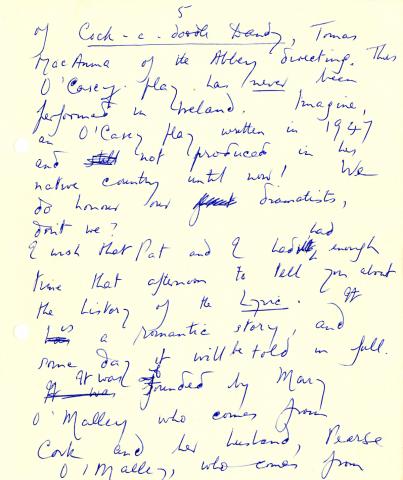 5
of Cock-a-doodle Dandy, Tomas
MacAnna of the Abbey directing. This
O'Casey play has never been
performed in Ireland. Imagine,
an O'Casey play written in 1947
and not produced in his
native country until now! We
do honour our dramatists,
don't we?
had
I wish that Pat and I had enough
time that afternoon to tell you about
the history of the Lyric. It
is a romantic story, and
some day it will be told in full.
It was
It was founded by Mary
O'Malley who comes from
Cork and her husband, Pearse
O'Malley, who comes from